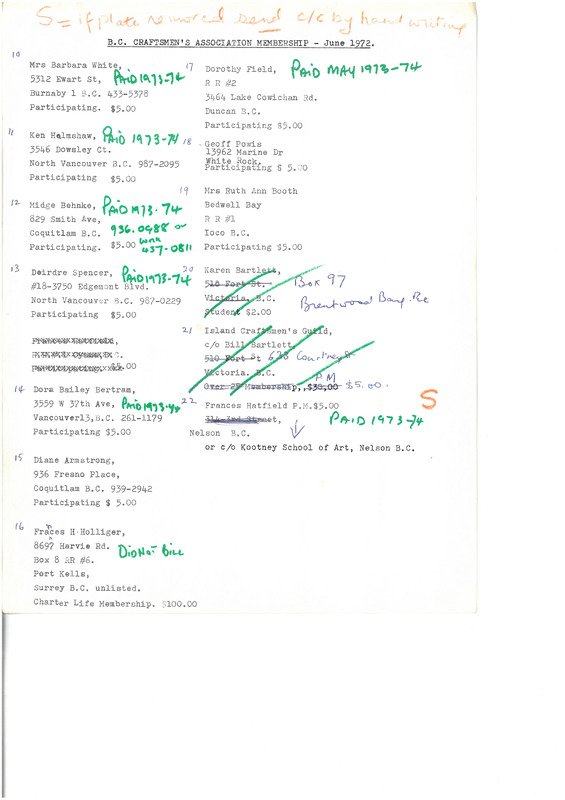 S = if plate removed send c/c by hand writing
B.C. CRAFTSMEN'S ASSOCIATION MEMBERSHIP - June 1972.
10
Mrs Barbara White,
5312 Ewart St, PAID 1973-74
Burnaby 1 B.C. 433-5378
Participating. $5.00
11
Ken Helmshaw, PAID 1973-74
3546 Dowsley Ct.
North Vancouver B.C. 987-2095
Participating $5.00
12
Midge Behnke, PAID 1973-74
829 Smith Ave,
Coquitlam B.C. 936-0488 or
Participating. $5.00 work 437-0811
13
Deirdre Spencer, PAID 1973-74
#18-3750 Edgemont Blvd.
North Vancouver B.C. 987-0229
Participating $5.00
$5.00
14
Dora Bailey Bertram,
3559 W 37th Ave, PAID 1973-74
Vancouver13,B.C. 261-1179
Participating $5.00
15
Diane Armstrong,
936 Fresno Place,
Coquitlam B.C. 939-2942
Participating $ 5.00
16
Frances H Holliger,
8697 Harvie Rd. Did Not Bill
Box 8 RR #6.
Port Kells,
Surrey B.C. unlisted.
Charter Life Membership. $100.00
17
Dorothy Field, PAID MAY 1973-74
R R #2
3464 Lake Cowichan Rd.
Duncan B.C.
Participating $5.00
18
Geoff Powis
13962 Marine Dr
White Rock.
Participating $ 5.00
19
Mrs Ruth Ann Booth
Bedwell Bay
R R #1
Ioco B.C.
Participating $5.00
20
Karen Bartlett,
510 Fort St. Box 97
Victoria, B.C. Brentwood Bay.
Student $2.00
21
Island Craftsmen's Guild,
c/o Bill Bartlett,
510 Fort St 638 Courtney
Victoria. B.C.
Over 25 Membership, $30.00 PM $5.00.
22
Frances Hatfield P.M.$5.00 S
314-3rd Street, PAID 1973-74
Nelson B.C.
or c/o Kootney School of Art, Nelson B.C.